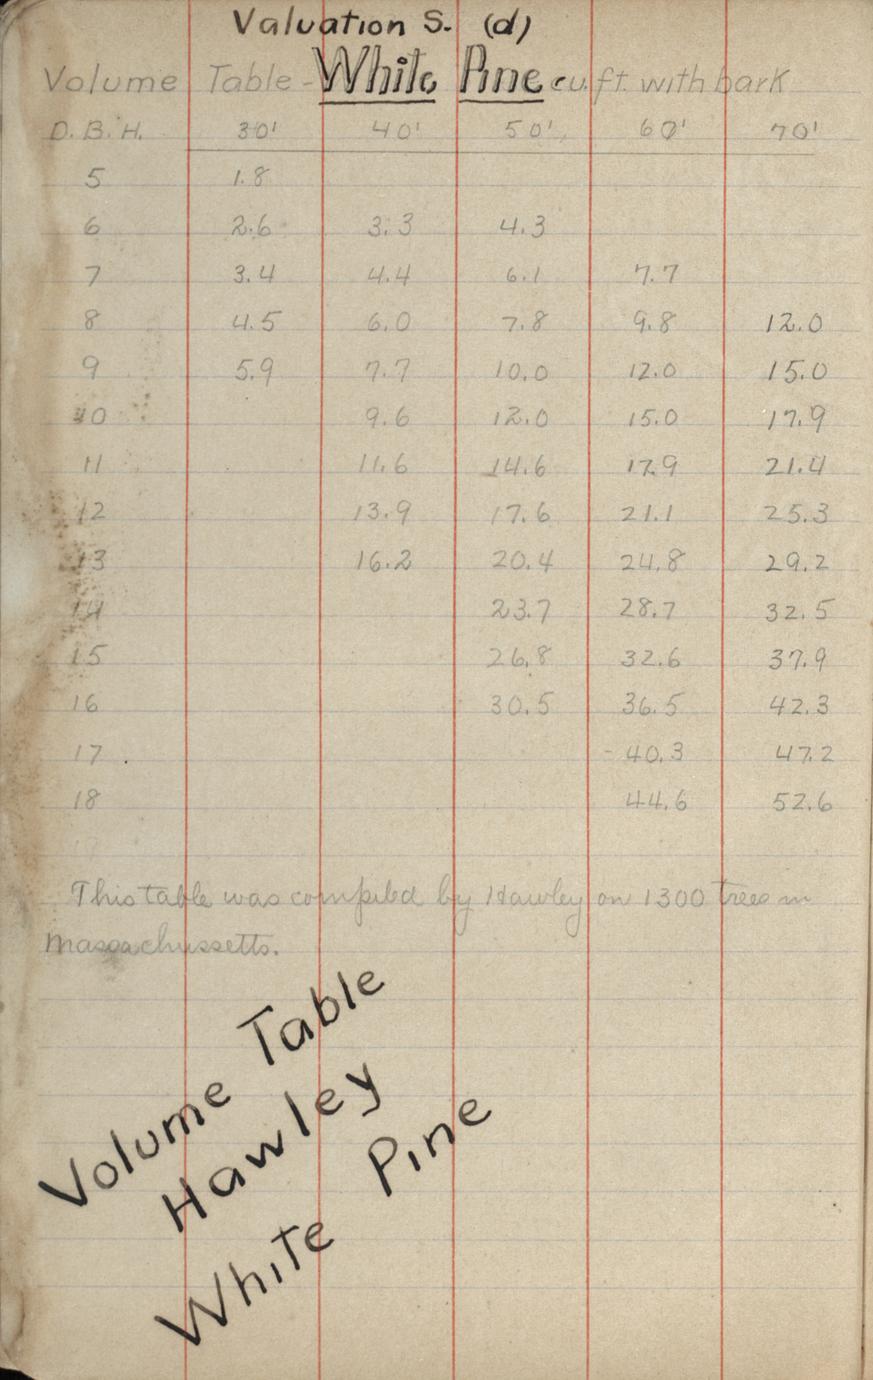 Valuation S. (d)
Volume Table - White Pine cu. ft. with bark
D.B.H. 30' 40' 50' 60' 70'
5 1.8
6 2.6 3.3 4.3
7 3.4 4.4 6.1 7.7
8 4.5 6.0 7.8 9.8 12.0
9 5.9 7.7 10.0 12.0 15.0
10 9.6 12.0 15.0 17.9
11 11.6 14.6 17.9 21.4
12 13.9 17.6 21.1 25.3
13 16.2 20.4 24.8 29.2
14 23.7 28.7 32.5
15 26.8 32.6 37.9
16 30.5 36.5 42.3
17 40.3 47.2
18 44.6 52.6
This table was compiled by Hawley on 1300 trees in
Massachussetts.
Volume Table
Hawley
White Pine